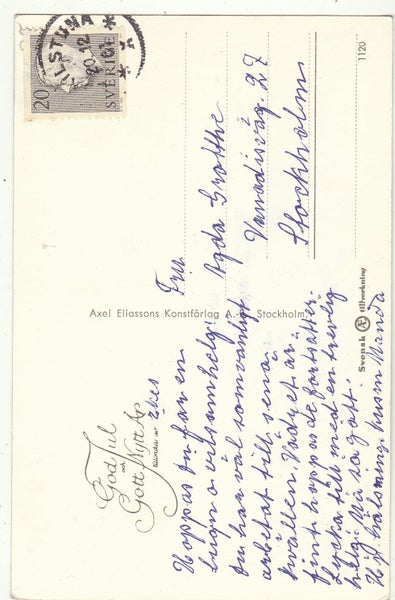 ILSTUNA
20.12
61
20
SVERIGE
1120
Fru.
Agda Grotthe
Vanadisväg. 27
Stockholm
Axel Eliassons Konstförlag A.-B. Stockholm.
Svensk Æ tillverkning
God Jul
och
Gott Nytt År
tillönskas av
Hoppas du får en
lugn o vilsam helg.
du har väl som vanligt
arbetat till sena
kvällen. Vädret är
fint hoppas de fortsätter.
Lycka till med en trevlig
helg. Vi så gott.
Hj. hälsning. kusin Wanda